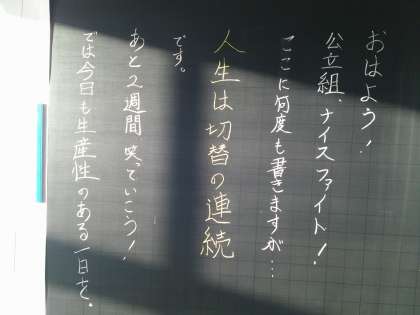 おはよう!
公立組、ナイスファイト!
ここに何度も書きますが…
人生は切替の連続
です。
あと2週間笑っていこう!
では今日も生産性のある一日を。